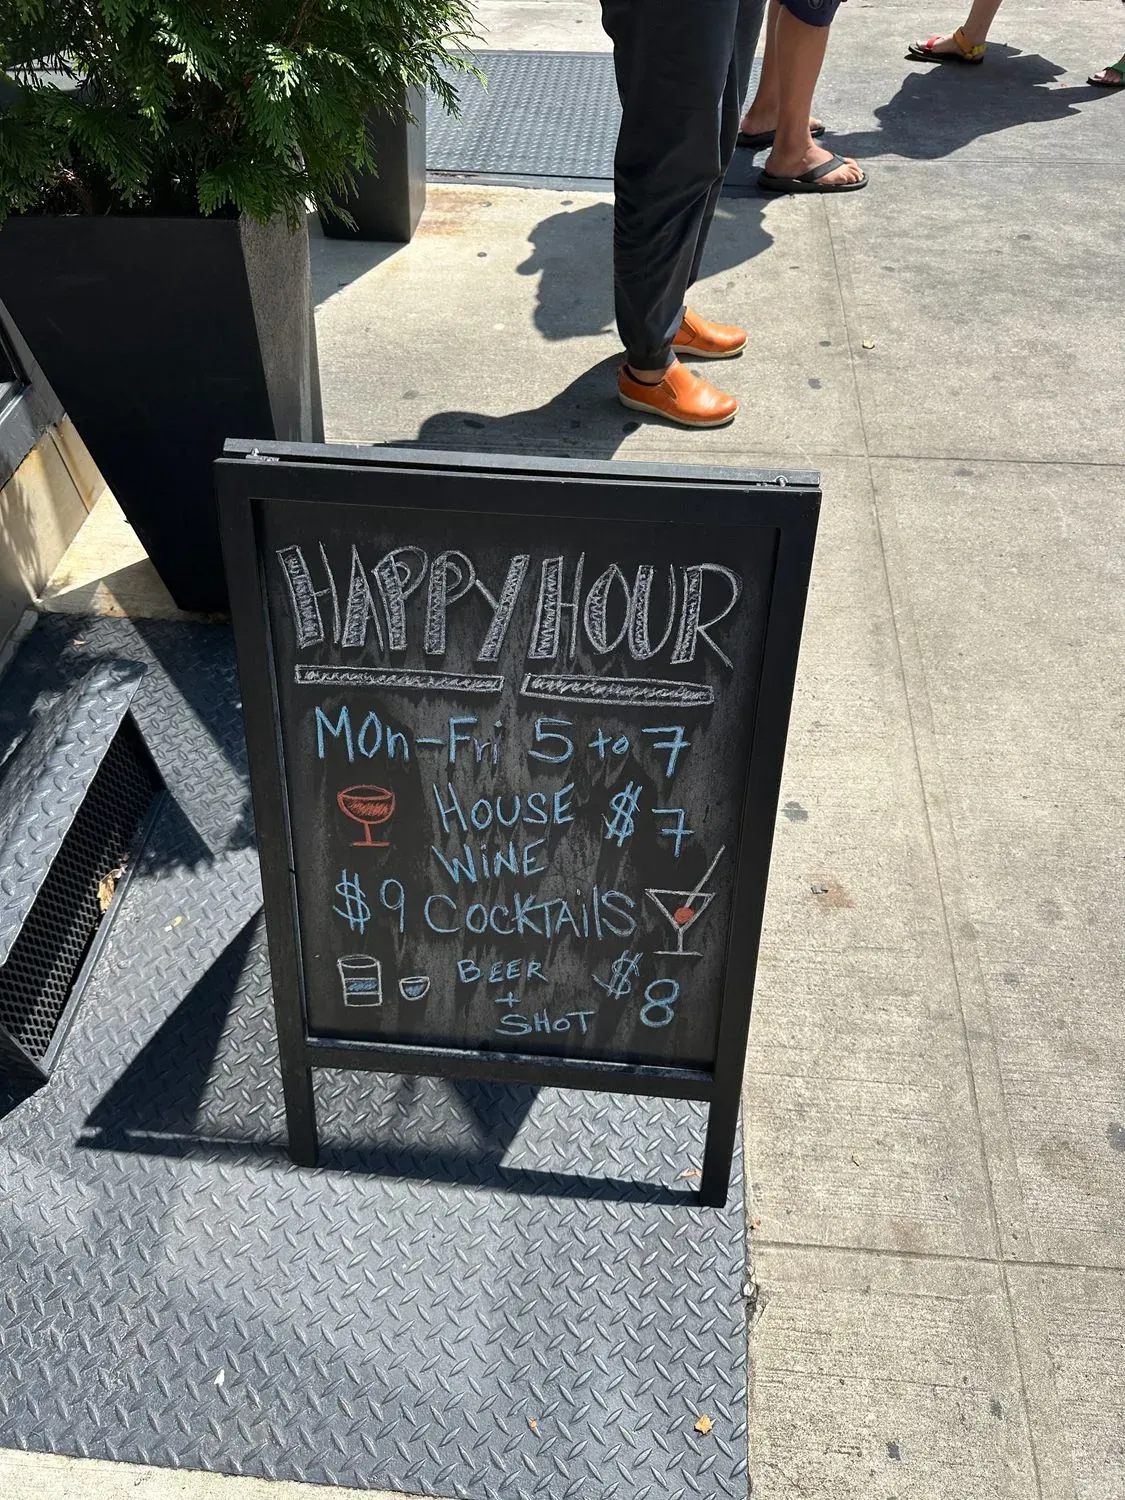 HAPPY HOUR
MOn-Fri 5 to 7
HOUSE $7
WiNE
$9 COCKTAilS
BEER $8
+
SHOT